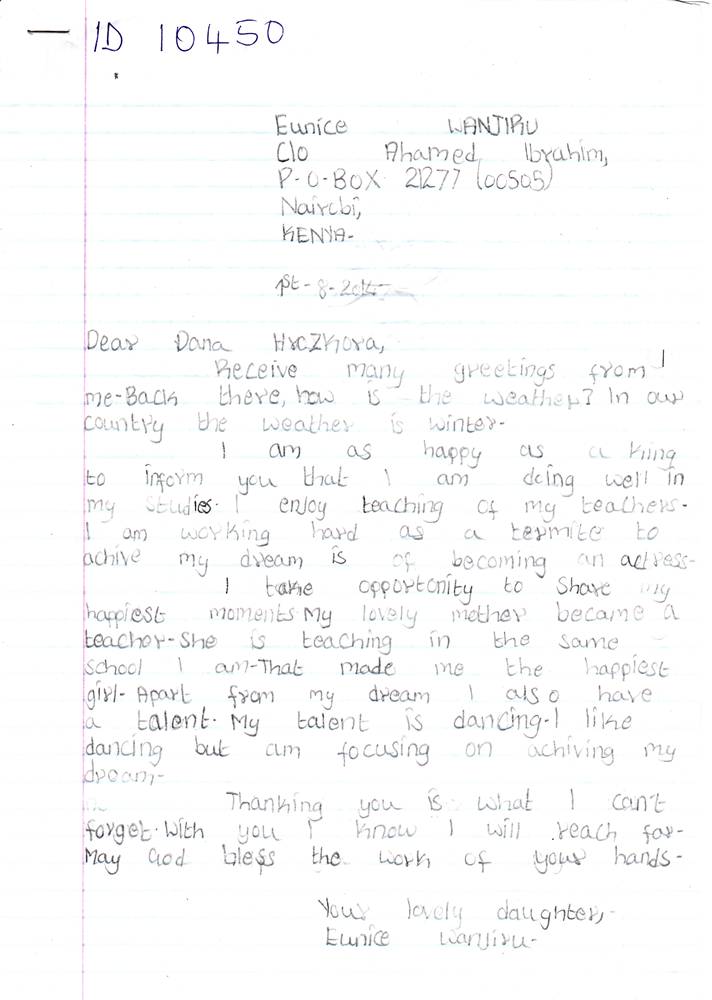 ID 10450
Eunice WANJIRU
C/o Ahamed Ibrahim,
P-O-BOX 21277 (00505)
Nairobi,
KENYA-
1st-8-2014
Dear Dana Hrczkova,
Receive many greetings from
me-Back there, how is the weather? In our
country the weather is winter-
I am as happy as a king
to inform you that I am doing well in
my studies. I enjoy teaching of my teachers-
I am working hard as a termite to
achive my dream is of becoming an actress-
I take opportcnity to share my
happiest moments.My lovely mother became a
teacher-She is teaching in the same
school I am-That made me the happiest
girl- Apart from my dream I also have
a talent. My talent is dancing-I like
dancing but am focusing on achiving my
dream-
Thanking you is what I can't
forget.With you I know I will reach far-
May God bless the work of your hands-
Your lovely daughter,
Eunice Wanjiru-